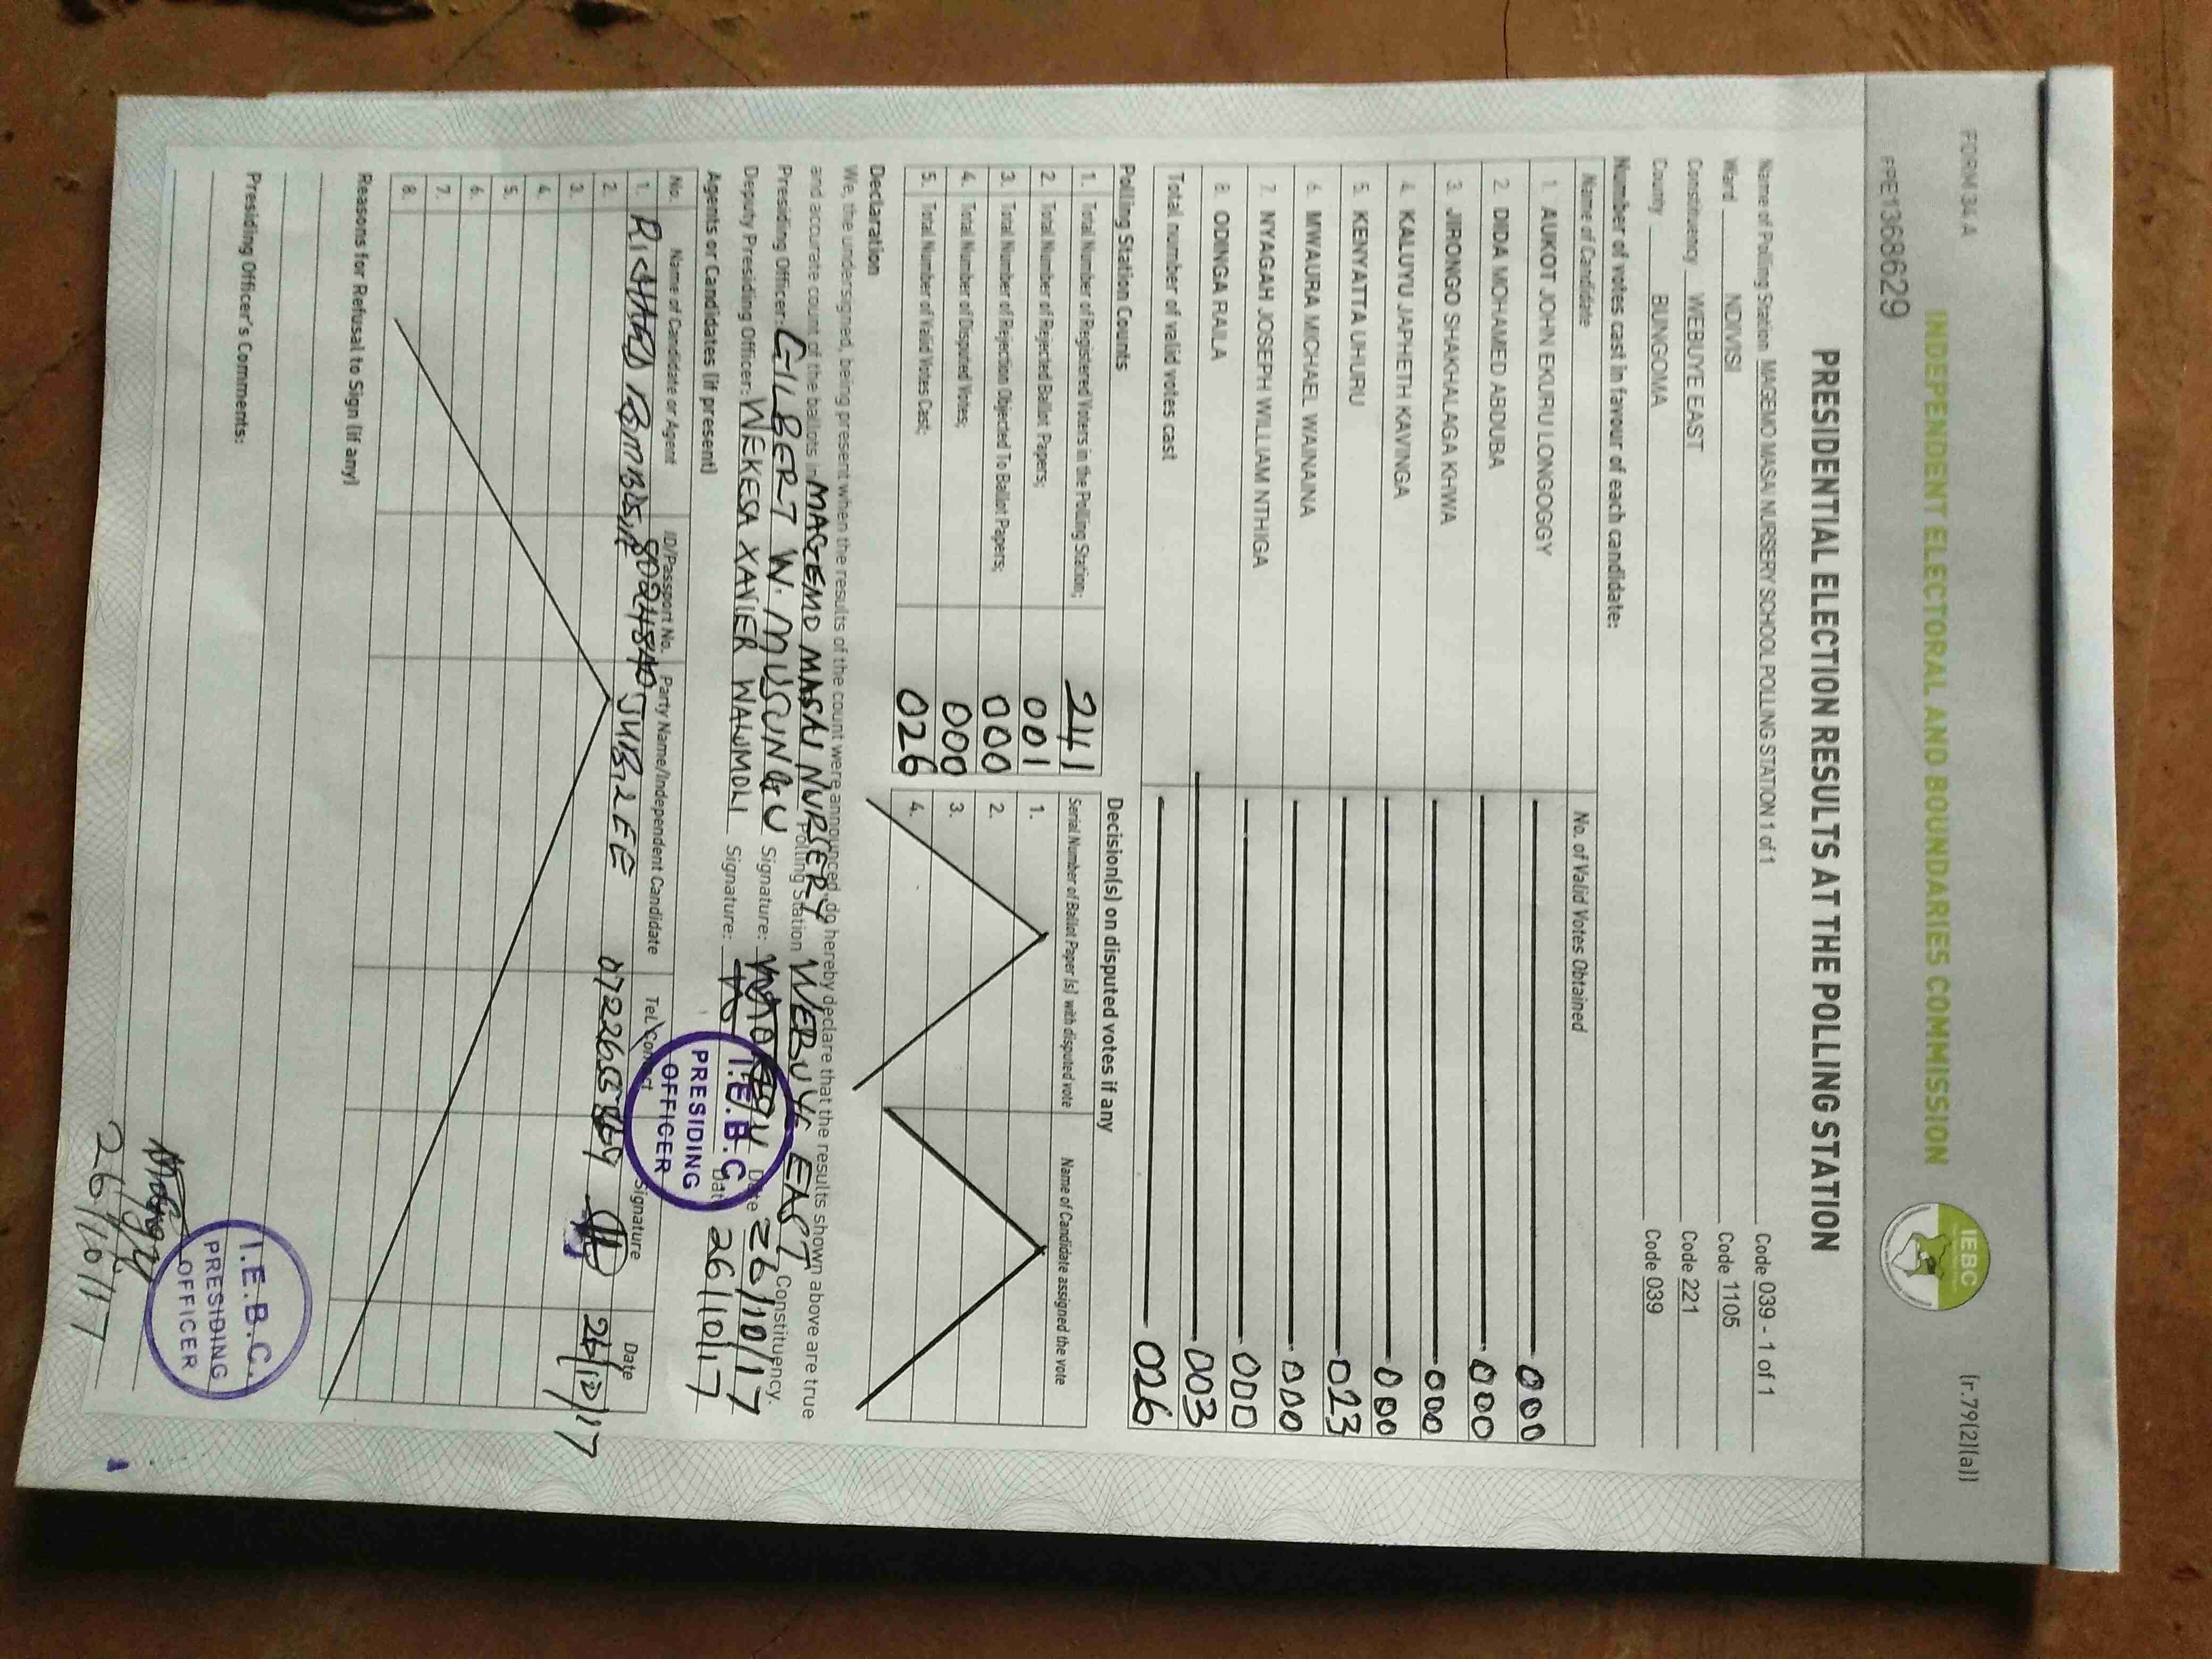 FORM 34 A
(r.79(2)(a))
INDEPENDENT ELECTORAL AND BOUNDARIES COMMISSION
IEBC
PRESIDENTIAL ELECTION RESULTS AT THE POLLING STATION
Name of Polling Station MAGEMO MASAI NURSERY SCHOOL POLLING STATION 1 of 1 Code 039 - 1 of 1
Ward NDIVISI Code 1105
Constituency WEBUYE EAST Code 221
County BUNGOMA Code 039
Number of votes cast in favour of each candidate:
Name of Candidate No. of Valid Votes Obtained
1. AUKOT JOHN EKURU LONGOGGY 000
2. DIDA MOHAMED ABDUBA 000
3. JIRONGO SHAKHALAGA KHWA 000
4. KALUYU JAPHETH KAVINGA 000
5. KENYATTA UHURU 023
6. MWAURA MICHAEL WAINAINA 000
7. NYAGAH JOSEPH WILLIAM NTHIGA 000
8. ODINGA RAILA 003
Total number of valid votes cast 026
Polling Station Counts
1. Total Number of Registered Voters in the Polling Station; 241
2. Total Number of Rejected Ballot Papers; 001
3. Total Number of Rejection Objected To Ballot Papers; 000
4. Total Number of Disputed Votes; 000
5. Total Number of Valid Votes Cast; 026
Decision(s) on disputed votes if any
Serial Number of Ballot Paper (s) with disputed vote Name of Candidate assigned the vote
1.
2.
3.
4.
Declaration
We, the undersigned, being present when the results of the count were announced, do hereby declare that the results shown above are true
and accurate count of the ballots in MAGEMO MASAI NURSERY Polling Station WEBUYE EAST Constituency.
Presiding Officer: GILBERT W. MUSUNGU Signature: Date 26/10/17
Deputy Presiding Officer: WEKESA XAVIER Signature: Date 26/10/17
I.E.B.C.
PRESIDING
OFFICER
Agents or Candidates (if present)
No. Name of Candidate or Agent ID/Passport No. Party Name/Independent Candidate Tel. Contact Signature Date
1. RICHARD JUBILEE
2.
3.
4.
5.
6.
7.
8.
Reasons for Refusal to Sign (if any)
Presiding Officer's Comments:
I.E.B.C.
PRESIDING
OFFICER
26/10/17